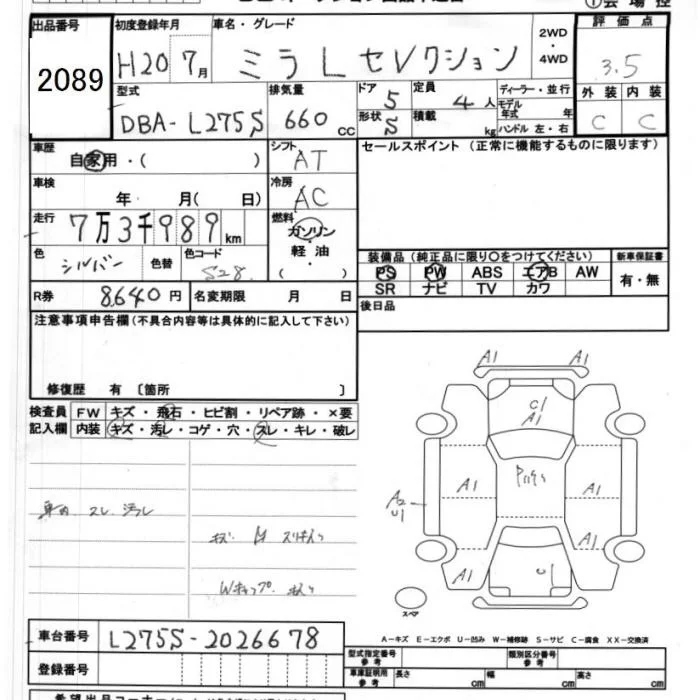 出品番号
2089
初度登録年月
H20 7月
車名・グレード
ミラ L セレクション
2WD
・
4WD
評価点
3.5
外装 内装
C C
型式
DBA-L275S
排気量
660 cc
ドア 5
形状 5
定員 4人
積載 kg
ディーラー・並行
モデル年式 年
ハンドル 左・右
車歴
自家用・( )
シフト
AT
セールスポイント (正常に機能するものに限ります)
車検
年 月( 日)
冷房
AC
走行
7万3千989km
燃料
ガソリン
軽油
・
( )
色
シルバー
色替
色コード
S28
装備品 (純正品に限り○をつけてください)
新車保証書
PS PW ABS エアB AW
SR ナビ TV カワ
有・無
R券 8,640円
名変期限 月 日
後日品
注意事項申告欄(不具合内容等は具体的に記入して下さい)
修復歴 有 〔箇所 〕
検査員記入欄
FW キズ・飛石・ヒビ割・リペア跡・×要
内装 キズ・汚レ・コゲ・穴・スレ・キレ・破レ
車内 スレ 汚レ
A1 A1
C1
A1
A1 A1
A2
U1
A1 A1
U1
スペア
A-キズ E-エクボ U-凹み W-補修跡 S-サビ C-腐食 XX-交換済
車台番号
L275S-2026678
登録番号
型式指定番号
参考
類別区分番号
参考
車庫証明用
参考
長さ cm
幅 cm
高さ cm